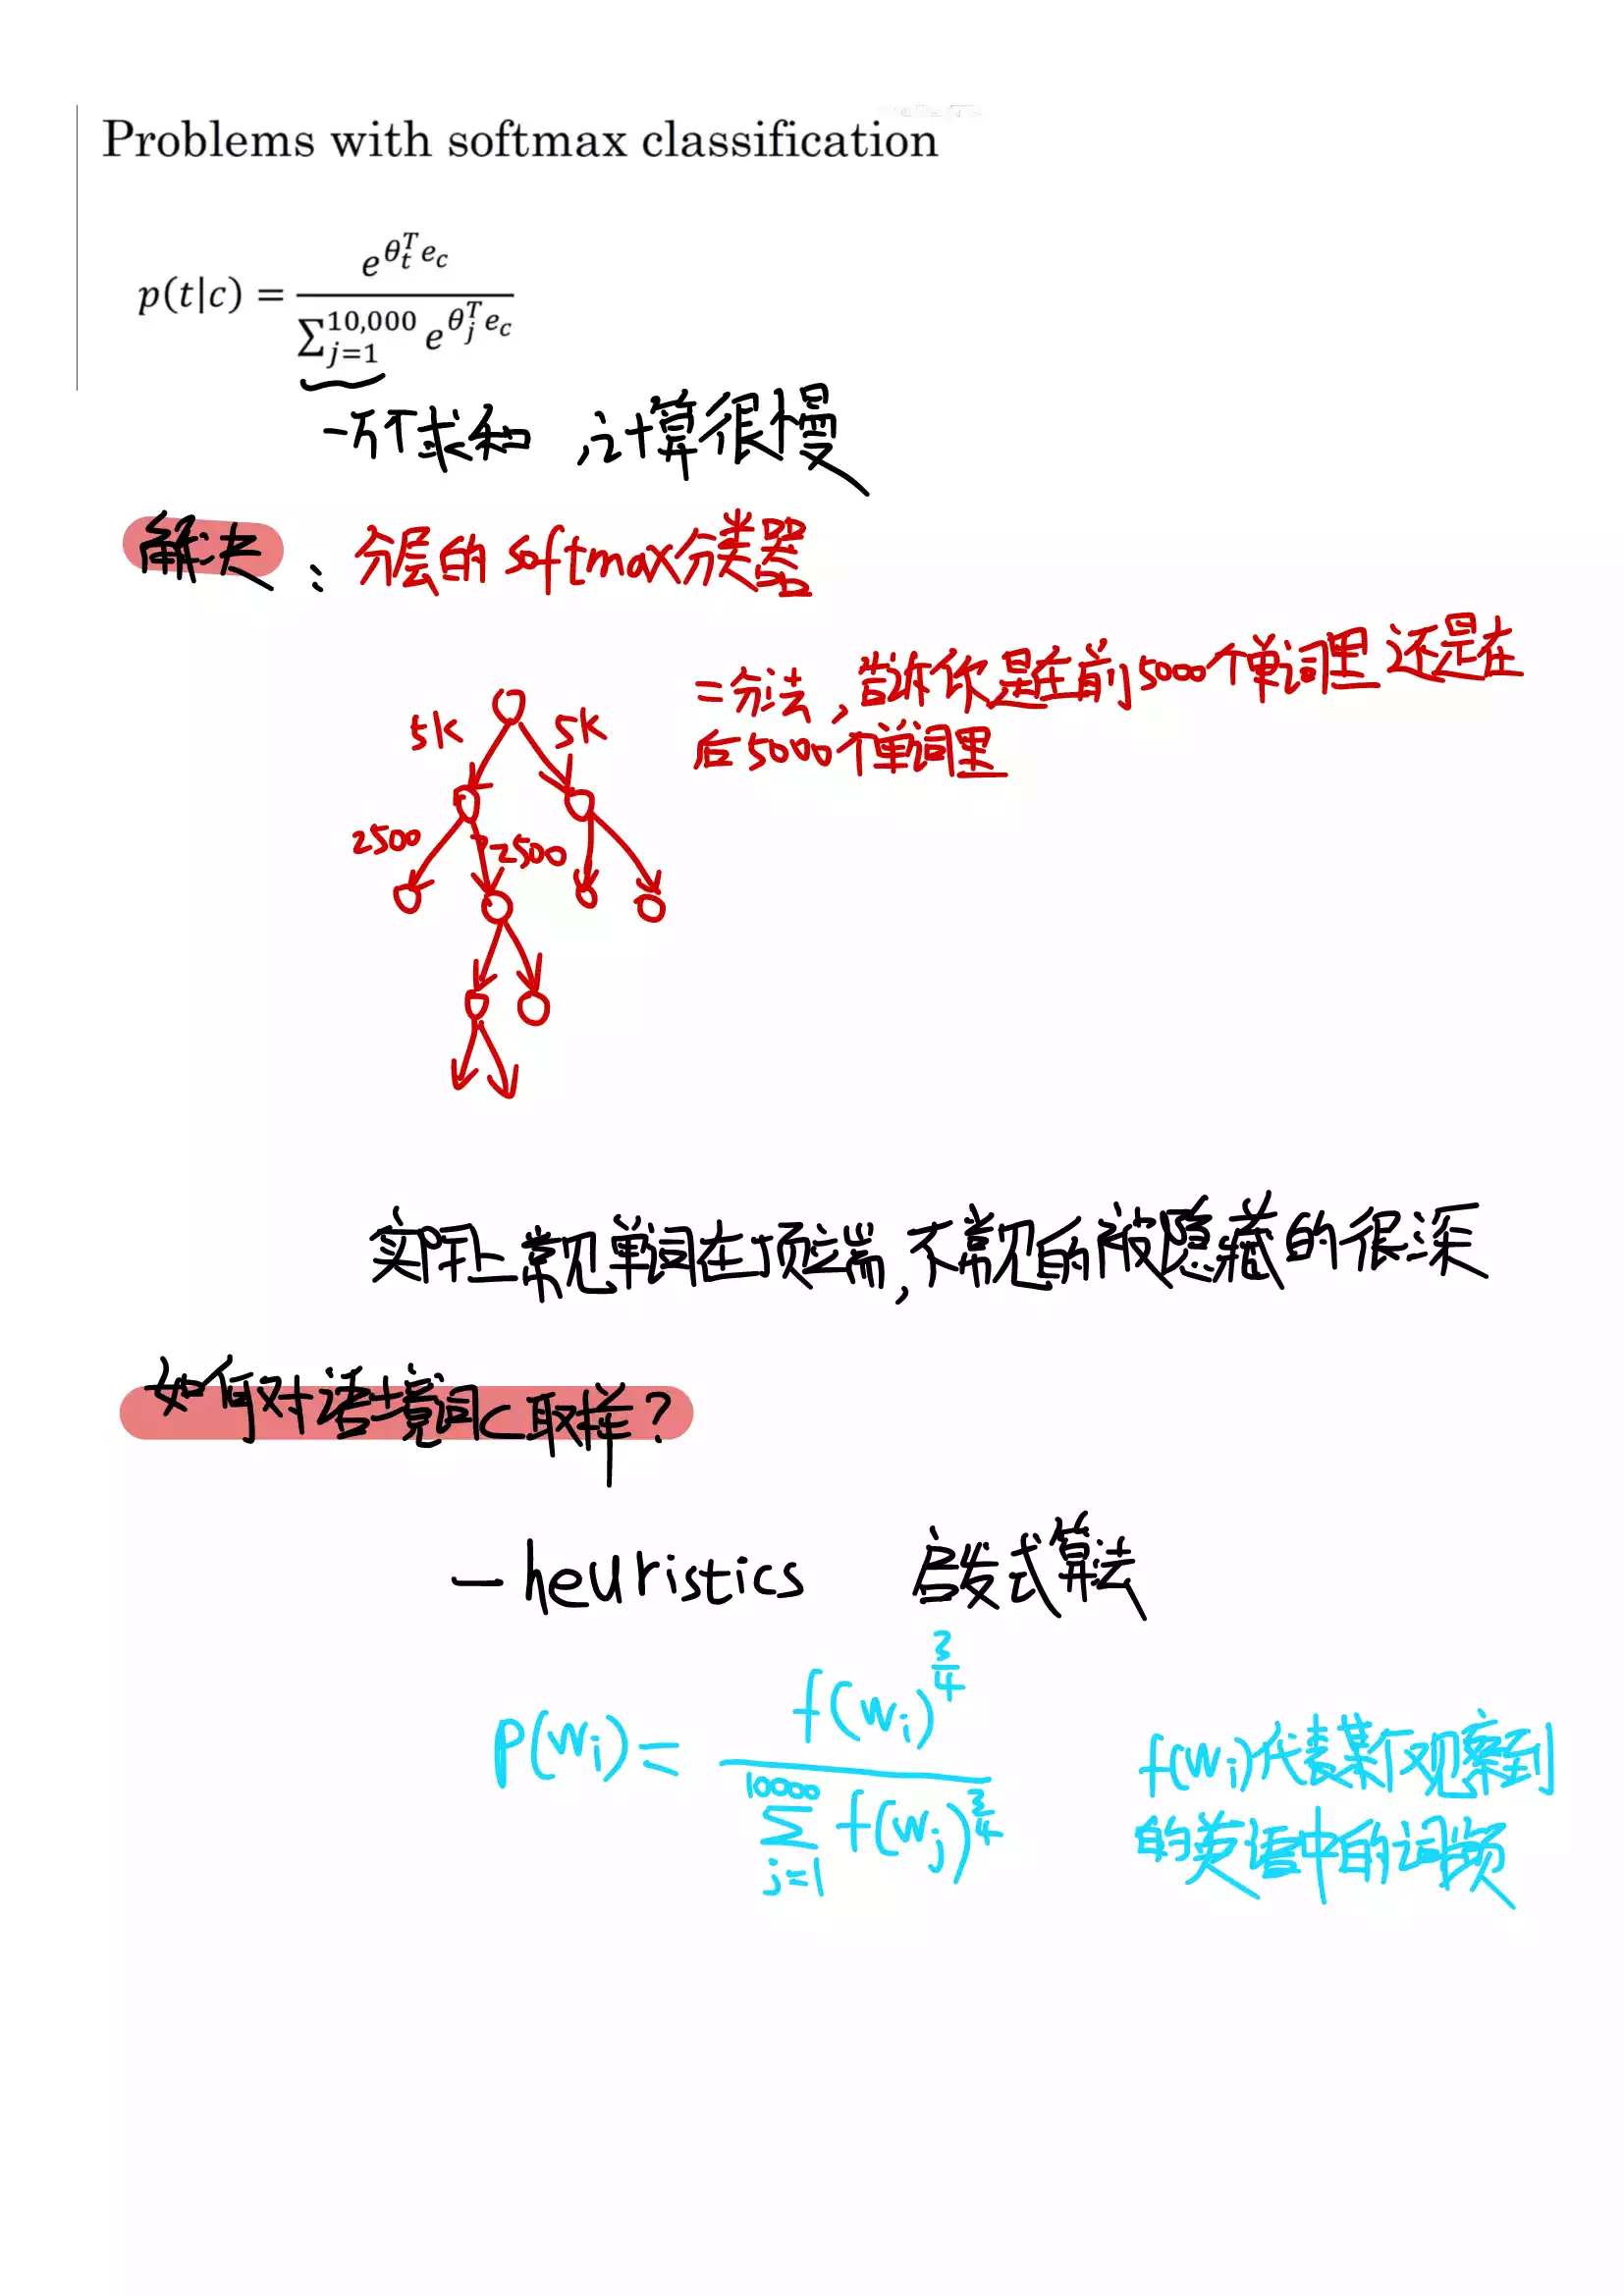 Problems with softmax classification
p(t|c) = e^{θ_t^T e_c} / ∑_{j=1}^{10,000} e^{θ_j^T e_c}
一万个求和，计算很慢
解决：分层的softmax分类器
二分法，告诉你是在前5000个单词里还是在
后5000个单词里
5K 5K
2500 2500
实际上常见单词在顶端，不常见的被隐藏的很深
如何对语境词C取样？
— heuristics 启发式算法
p(wi) = f(wi)^{3/4} / ∑_{j=1}^{10000} f(wj)^{3/4}
f(wi)代表某个观察到
的英语中的词频